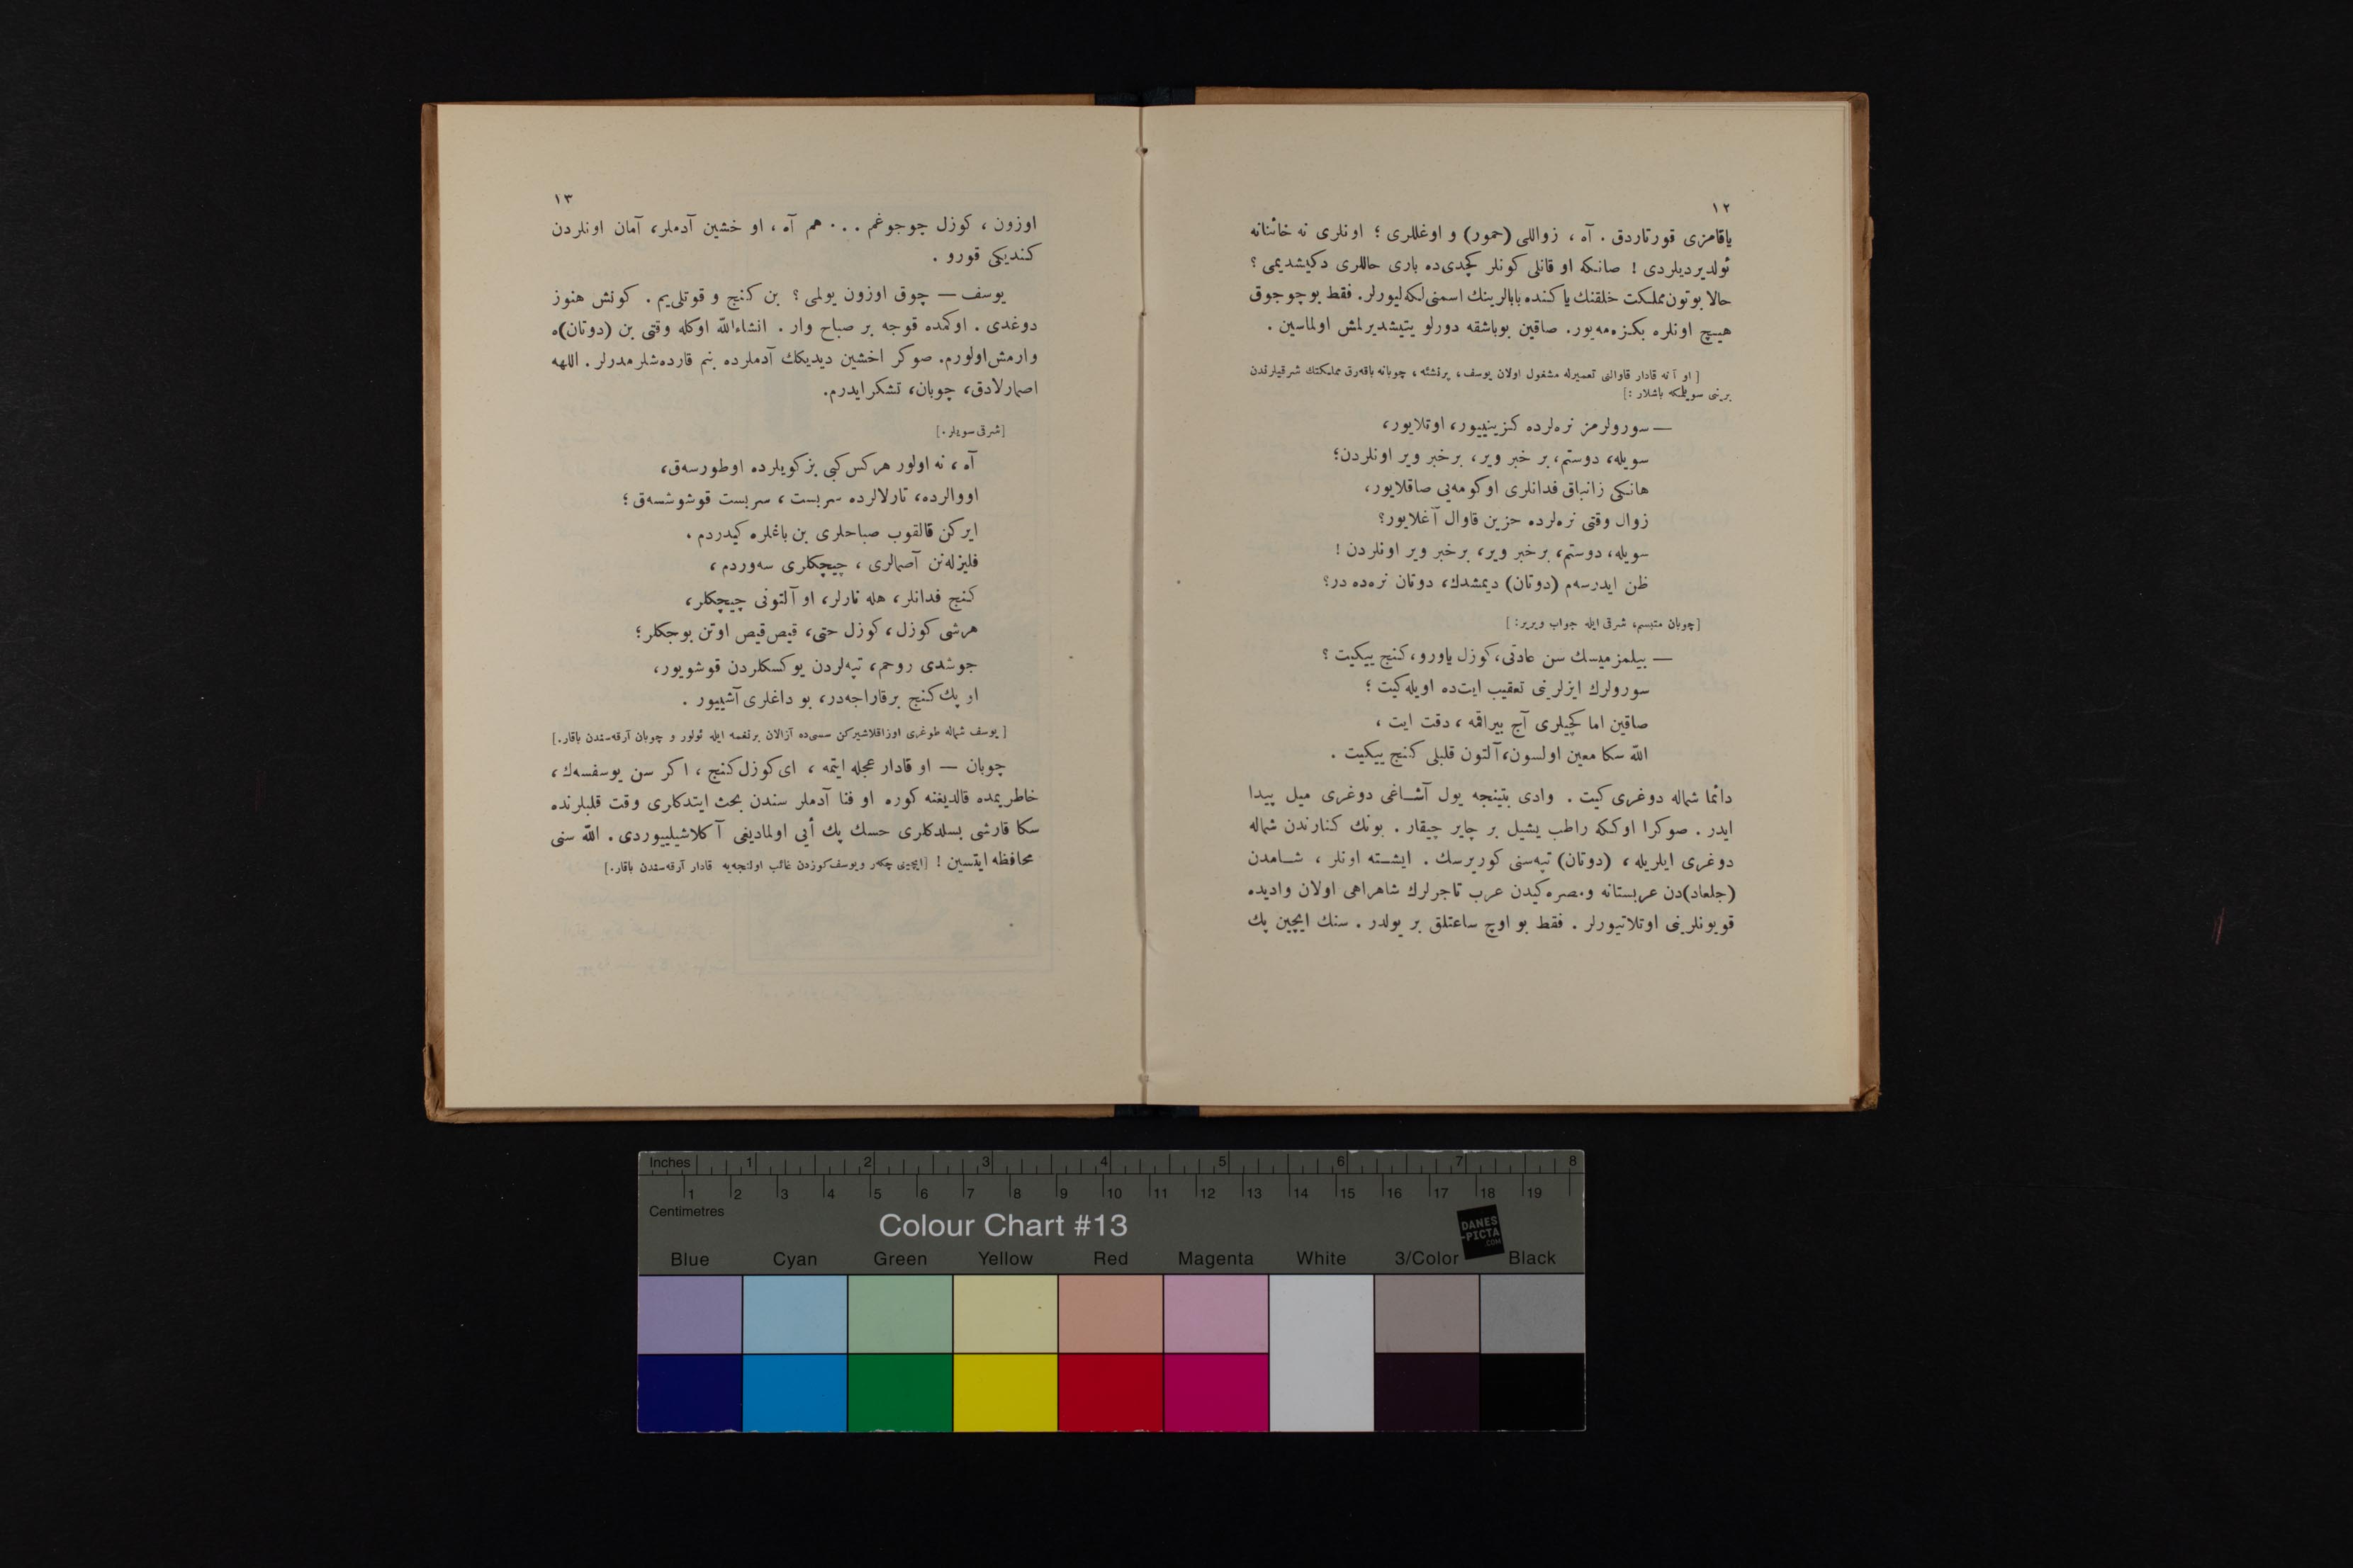 ١٢
ياقامزى قورتاردق . آه ، زواللى (حمور) و اوغللرى ؛ اونلرى نه خائنانه
ئولديرديلردى ! صانكه او قانلى كونلر كچدى‌ده بارى حاللرى دكيشديمى ؟
حالا بوتون مملكت خلقنك ياكنده بابالرينك اسمنى لكه‌ليورلر. فقط بو چوجوق
هيچ اونلره بكزه‌مه‌يور. صاقين بوباشقه دورلو يتيشديرلمش اولماسين .
[ او آنه قادار قاوالنى تعميرله مشغول اولان يوسف، پرنشئه ، چوبانه باقه‌رق مملكتك شرقيلرندن
برينى سويلمكه باشلار :]
— سورولرمز نره‌لرده كزينييور، اوتلايور،
سويله، دوستم، بر خبر وير، برخبر وير اونلردن؛
هانكى زانباق فدانلرى اوكومه‌يى صاقلايور،
زوال وقتى نره‌لرده حزين قاوال آغلايور؟
سويله، دوستم، برخبر وير، برخبر وير اونلردن !
ظن ايدرسه‌م (دوتان) ديمشدك، دوتان نره‌ده در؟
[چوبان متبسم، شرقى ايله جواب ويرير: ]
— بيلمزميسك سن عادتى، كوزل ياورو، كنج ييكيت ؟
سورولرك ايزلرينى تعقيب ايت‌ده اويله كيت ؛
صاقين اما كچيلرى آج بيراقمه ، دقت ايت ،
الله سكا معين اولسون، آلتون قلبلى كنج ييكيت .
دائما شماله دوغرى كيت . وادى بتينجه يول آشاغى دوغرى ميل پيدا
ايدر . صوكرا اوككه راطب يشيل بر چاير چيقار . بونك كنارندن شماله
دوغرى ايلريله ، (دوتان) تپه‌سنى كوريرسك . ايشته اونلر ، شامدن
(جلعاد)دن عربستانه ومصره كيدن عرب تاجرلرك شاهراهى اولان واديده
قويونلرينى اوتلاتيورلر . فقط بو اوچ ساعتلق بر يولدر . سنك ايچين پك
١٣
اوزون ، كوزل چوجوغم . . . هم آه ، او خشين آدملر، آمان اونلردن
كنديكى قورو .
يوسف — چوق اوزون يولمى ؟ بن كنج و قوتلى‌يم . كونش هنوز
دوغدى . اوكمده قوجه بر صباح وار . انشاءالله اوكله وقتى بن (دوتان)ه
وارمش اولورم. صوكر اخشين ديديكك آدملرده بنم قارده‌شلرمدرلر . اللهه
اصمارلادق، چوبان، تشكر ايدرم.
[شرقى سويلر.]
آه ، نه اولور هركس كبى بز كويلرده اوطورسه‌ق،
اووالرده، تارلالرده سربست ، سربست قوشوشسه‌ق ؛
ايركن قالقوب صباحلرى بن باغلره كيدردم .
فليزله‌نن آصمالرى ، چيچكلرى سه‌وردم ،
كنج فدانلر، هله نارلر، او آلتونى چيچكلر،
هرشى كوزل ، كوزل حتى، قيص قيص اوتن بوجكلر؛
جوشدى روحم، تپه‌لردن يوكسكلردن قوشويور،
او پك كنج برقاراجه‌در، بو داغلرى آشييور .
[ يوسف شماله طوغرى اوزاقلاشيركن سسى‌ده آزالان برنغمه ايله ئولور و چوبان آرقه‌سندن باقار.]
چوبان — او قادار عجله ايتمه ، اى كوزل كنج ، اكر سن يوسفسه‌ك ،
خاطريمده قالديغنه كوره او فنا آدملر سندن بحث ايتدكلرى وقت قلبلرنده
سكا قارشى بسلدكلرى حسك پك أيى اولماديغى آكلاشيلييوردى . الله سنى
محافظه ايتسين ! [ايچينى چكر ويوسف كوزدن غائب اولنجه‌يه قادار آرقه‌سندن باقار.]
Inches 1 2 3 4 5 6 7 8
1 2 3 4 5 6 7 8 9 10 11 12 13 14 15 16 17 18 19
Centimetres
Colour Chart #13
DANES
-PICTA
.COM
Blue Cyan Green Yellow Red Magenta White 3/Color Black